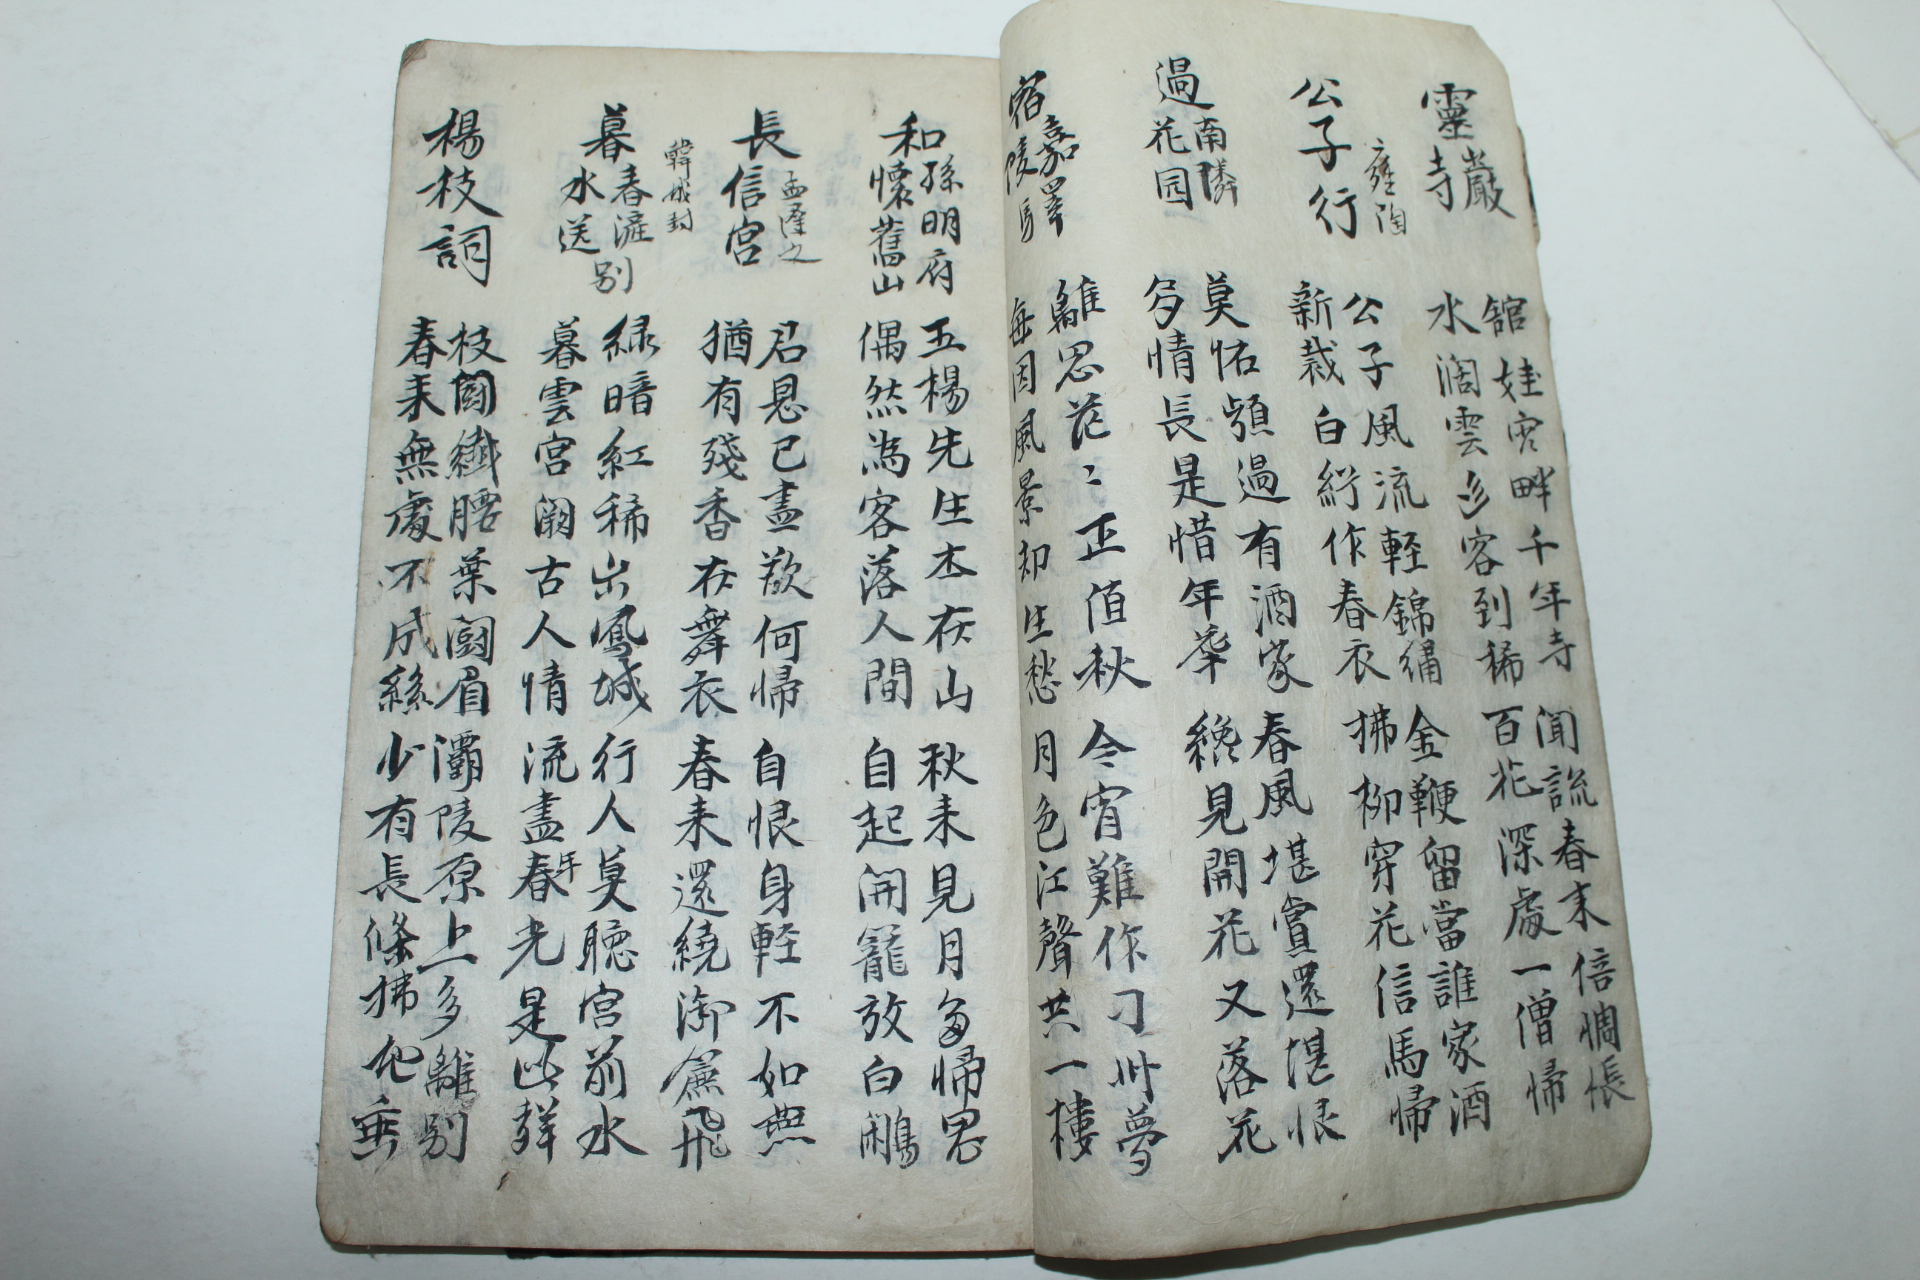 靈巖寺
館娃宮畔千年寺
水闊雲多客到稀
聞說春來倍惆悵
百花深處一僧帰
公子行
雍陶
公子風流輕錦繡
新裁白紵作春衣
金鞭留當誰家酒
拂柳穿花信馬帰
過南隣花园
莫怪頻過有酒家
多情長是惜年華
春風堪賞還堪恨
纔見開花又落花
宿嘉陵馹
離思茫〻正值秋
每因風景却生愁
今宵難作刀州夢
月色江聲共一樓
和孫明府懷舊山
五楊先生本在山
偶然為客落人間
秋來見月多帰思
自起開籠放白鷴
長信宮
孟遲之
君恩已盡欲何帰
猶有殘香在舞衣
自恨身輕不如燕
春來還繞御簾飛
暮春滻水送別
韓琮封
緑暗紅稀出鳳城
暮雲宮闕古人情
行人莫聽宮前水
流盡年春光是此聲
楊枝詞
枝鬪纖腰葉鬪眉
春來無處不成絲
灞陵原上多離別
少有長條拂地垂